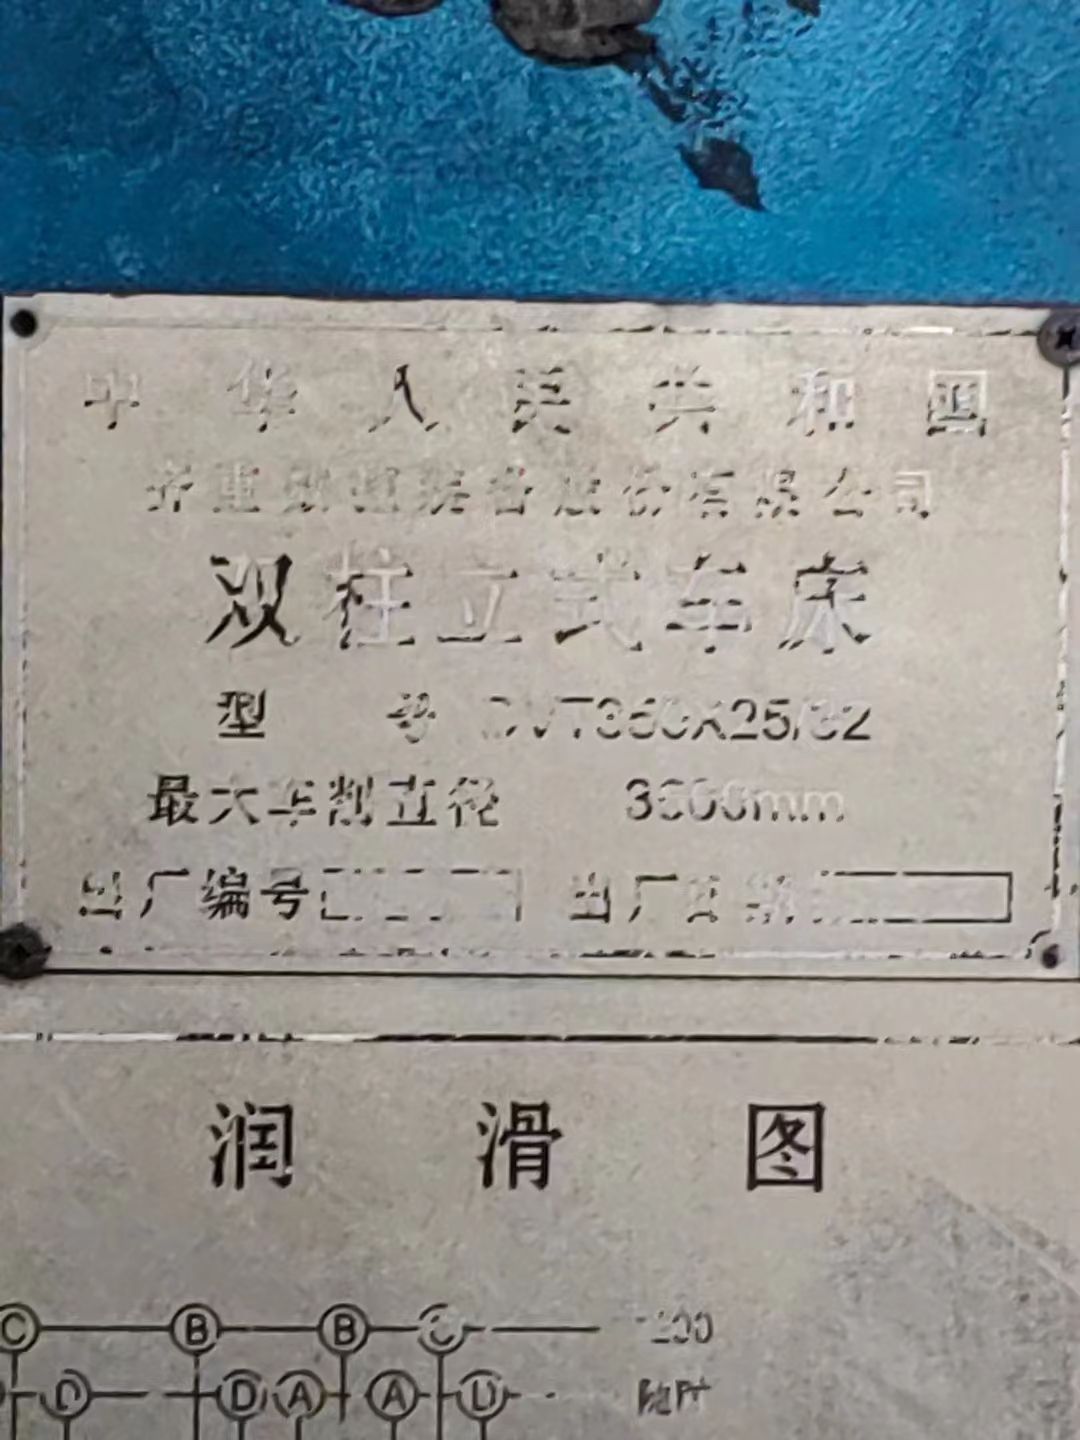 中华人民共和国
齐重数控装备股份有限公司
双柱立式车床
型号 DVT360X25/32
最大车削直径 3600mm
出厂编号 出厂
润滑图
C B B C
D D A A D